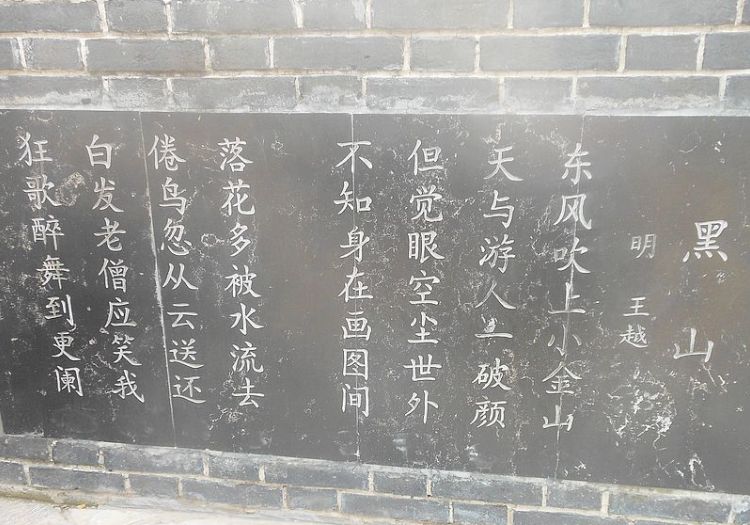 黑山
明 王越
东风吹上小金山
天与游人一破颜
但觉眼空尘世外
不知身在画图间
落花多被水流去
倦鸟忽从云送还
白发老僧应笑我
狂歌醉舞到更阑